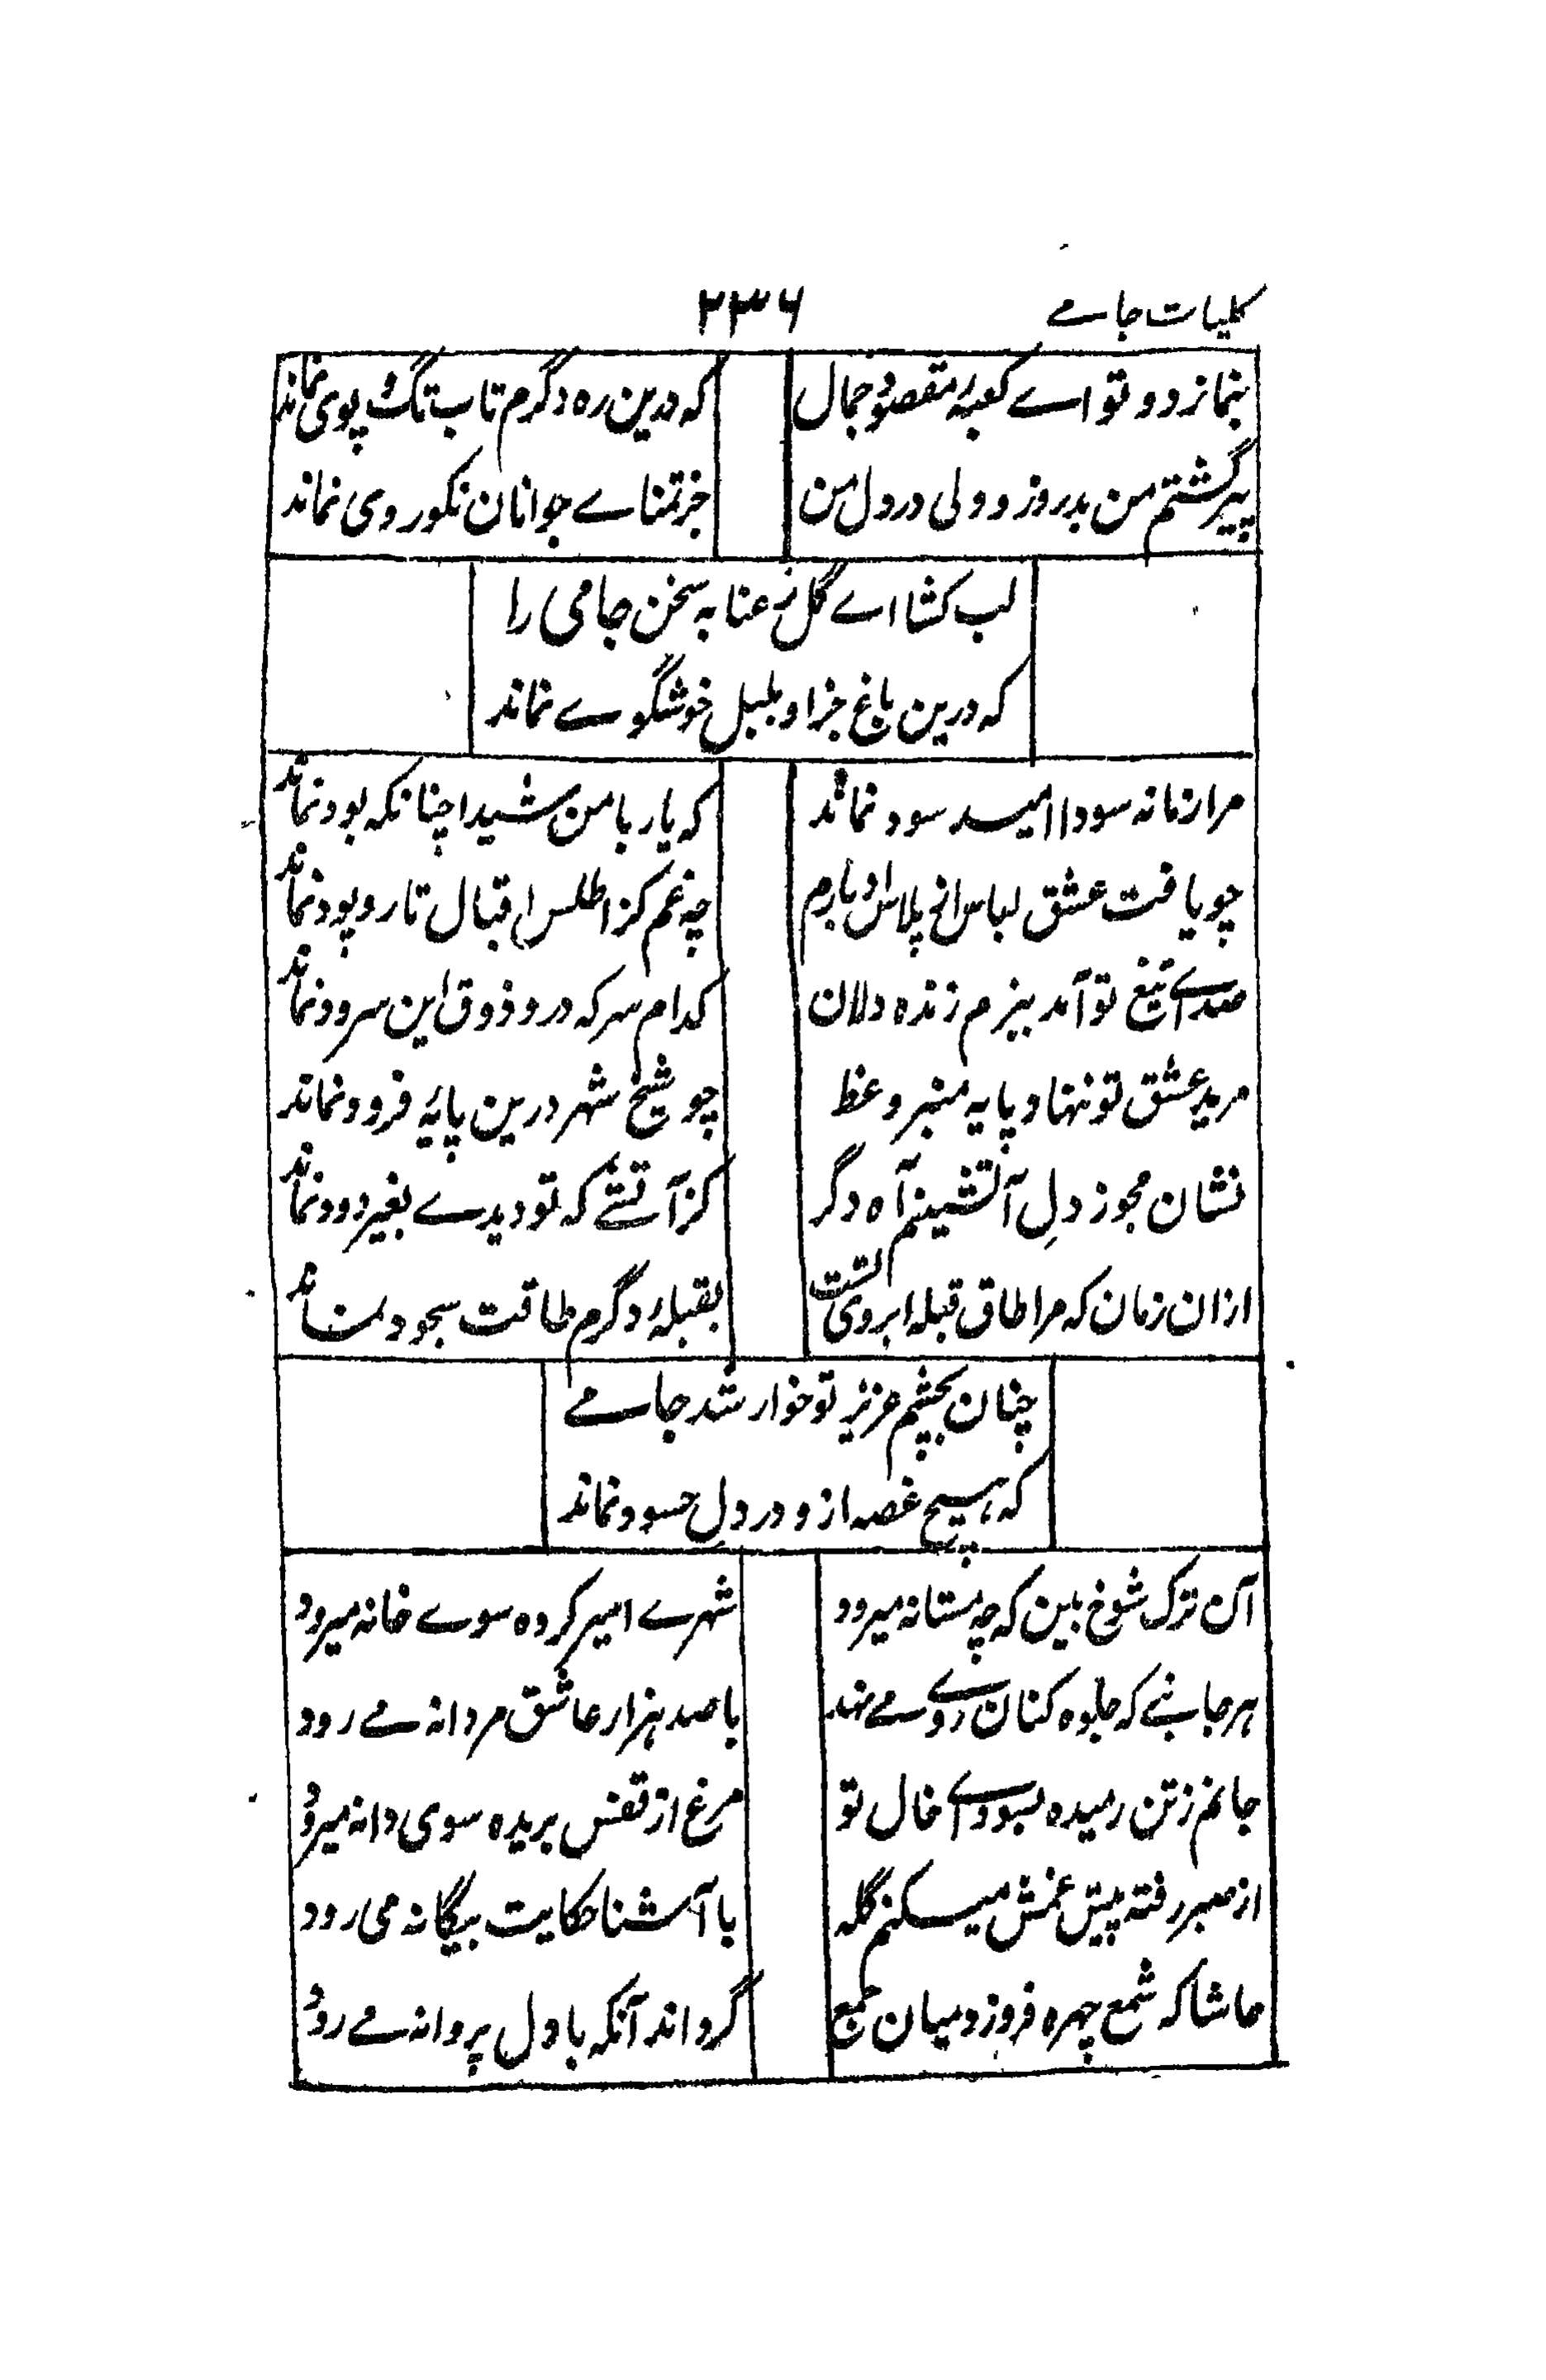 کلیات جامے
۲۳۶
بنما زود تو اے کعبۂ مقصود جمال
که درین ره دگرم تاب تگ و پوی نماند
پیر گشتم من بدروز و ولی در دل من
جز تمناے جوانان نکوروی نماند
لب کشا اے گل رعنا به سخن جامی را
که درین باغ جز او بلبل خوشگوے نماند
مرا زمانه سودا امید سود نماند
که یار با من شیدا چنانکه بود نماند
چو یافت عشق لباس از پلاس ادبارم
چه غم کز اطلس اقبال تار و پود نماند
صداے تیغ تو آمد ببزم زنده دلان
کدام سر که درو ذوق این سرود نماند
مرید عشق تو ننهاد پایه منبر وعظ
چو شیخ شهر درین پایۂ فرود نماند
نشان مجوز دلِ آتشینم آه دگر
کز آتشے که تو دیدے بغیر دود نماند
ازان زمان که مرا طاق قبله ابروی تست
بقبلۂ دگرم طاقت سجود نماند
چنان بچشم عزیز تو خوار شد جامے
که هیچ غصه ازو در دل حسود نماند
آن ترک شوخ بین که چه مستانه میرود
شهرے اسیر کرده سوے خانه میرود
هر جانبے که جلوه کنان روے مے نهد
با صد هزار عاشق مردانه مے رود
جانم ز تن رمیده بسوداے خال تو
مرغ از قفس بریده سوی دانه میرود
از صبر رفته پیش غمش میکنم گله
با آشنا حکایت بیگانه می رود
حاشا که شمع چهره فروزد میان جمع
گر داند آنکه با دل پروانه مے رود